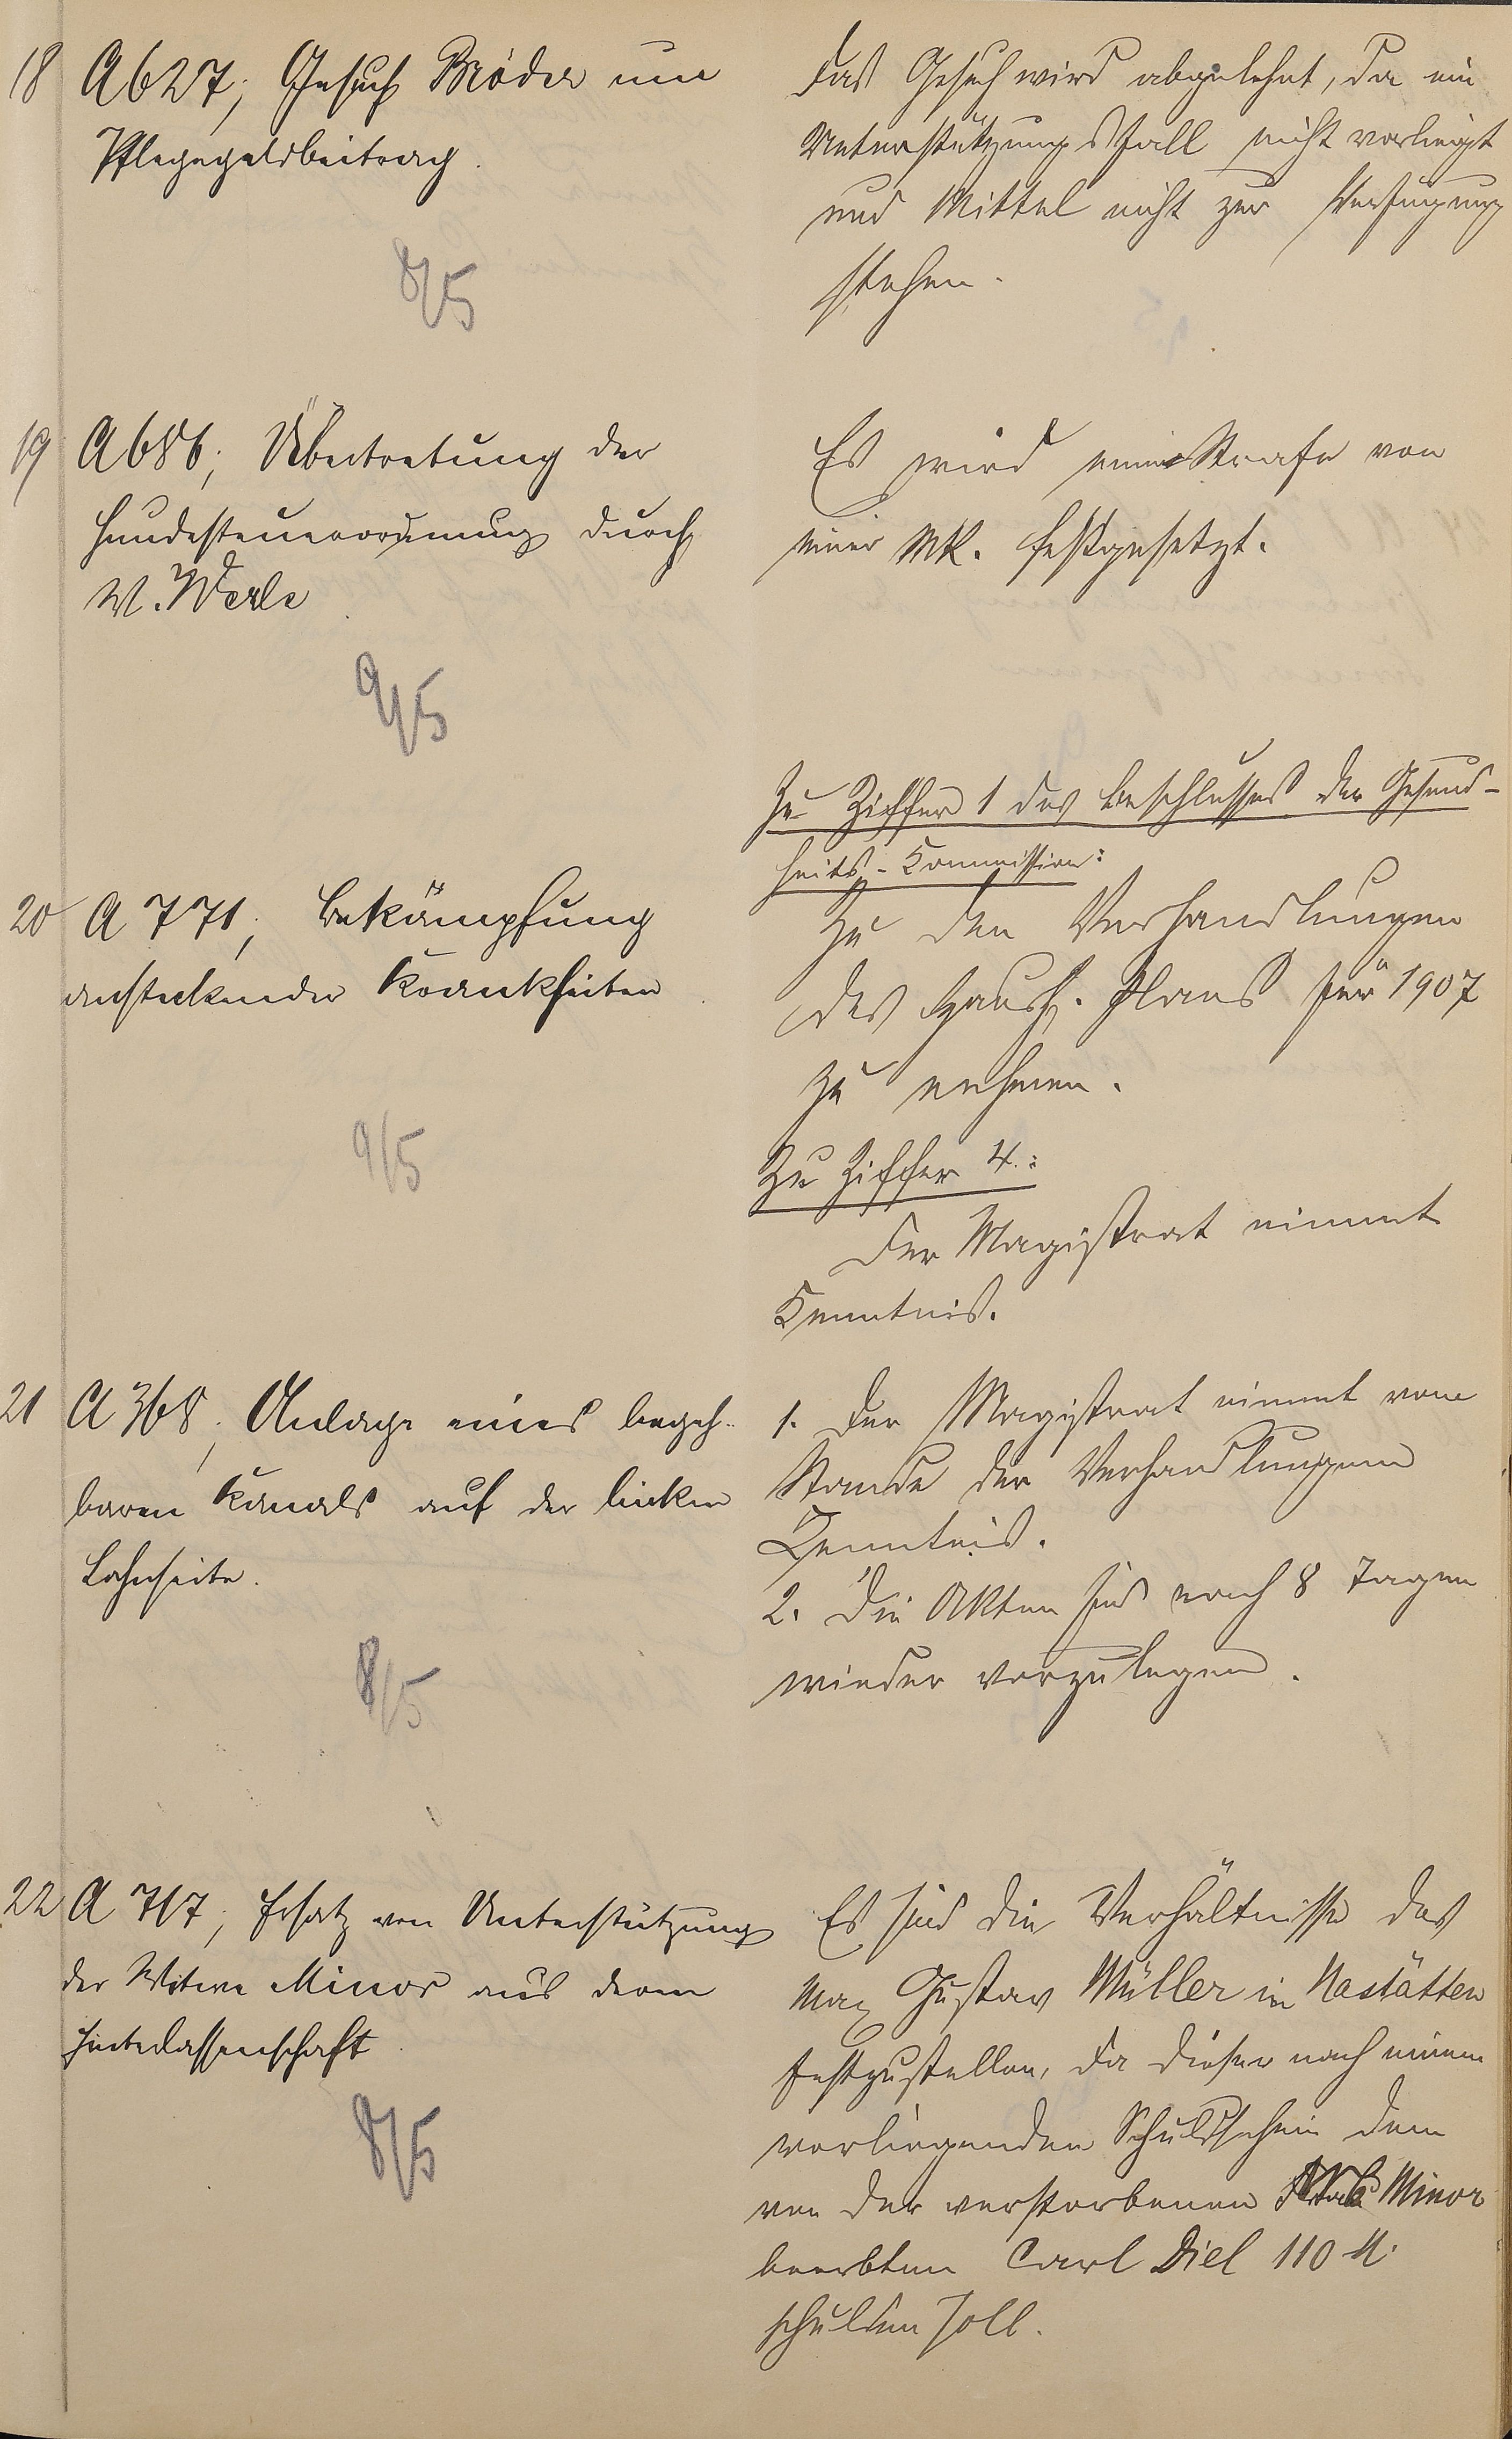 18 A 627; Gesuch Bröder um
Pflegegeldbeitrag.
8/5
Das Gesuch wird abgelehnt, da ein
Unterstützungsfall nicht vorliegt
und Mittel nicht zur Verfügung
stehen.
19 A 686; Übertretung der
Hundesteuerordnung durch
W. Werle
9/5
Es wird eine Strafe von
einer Mk. festgesetzt.
20 A 771; Bekämpfung
ansteckender Krankheiten.
9/5
Zu Ziffer 1 des Beschlusses der Gesund-
heits-Kommission:
Zu den Verhandlungen
des Haush. Plans für 1907
zu nehmen.
Zu Ziffer 4.:
Der Magistrat nimmt
Kenntnis.
21 A 368; Anlage eines begeh-
baren Kanals auf der linken
Lahnseite.
8/5
1. Der Magistrat nimmt vom
Stande der Verhandlungen
Kenntnis.
2. Die Akten sind nach 8 Tagen
wieder vorzulegen.
22 A 717; Ersatz von Unterstützung
der Witwe Minor aus deren
Hinterlassenschaft.
8/5
Es sind die Verhältnisse des
Max Gustav Müller in Nastätten
festzustellen, da dieser nach einem
vorliegenden Schuldschein dem
von der verstorbenen Minor
beerbten Carl Diel 110 M.
schulden soll.